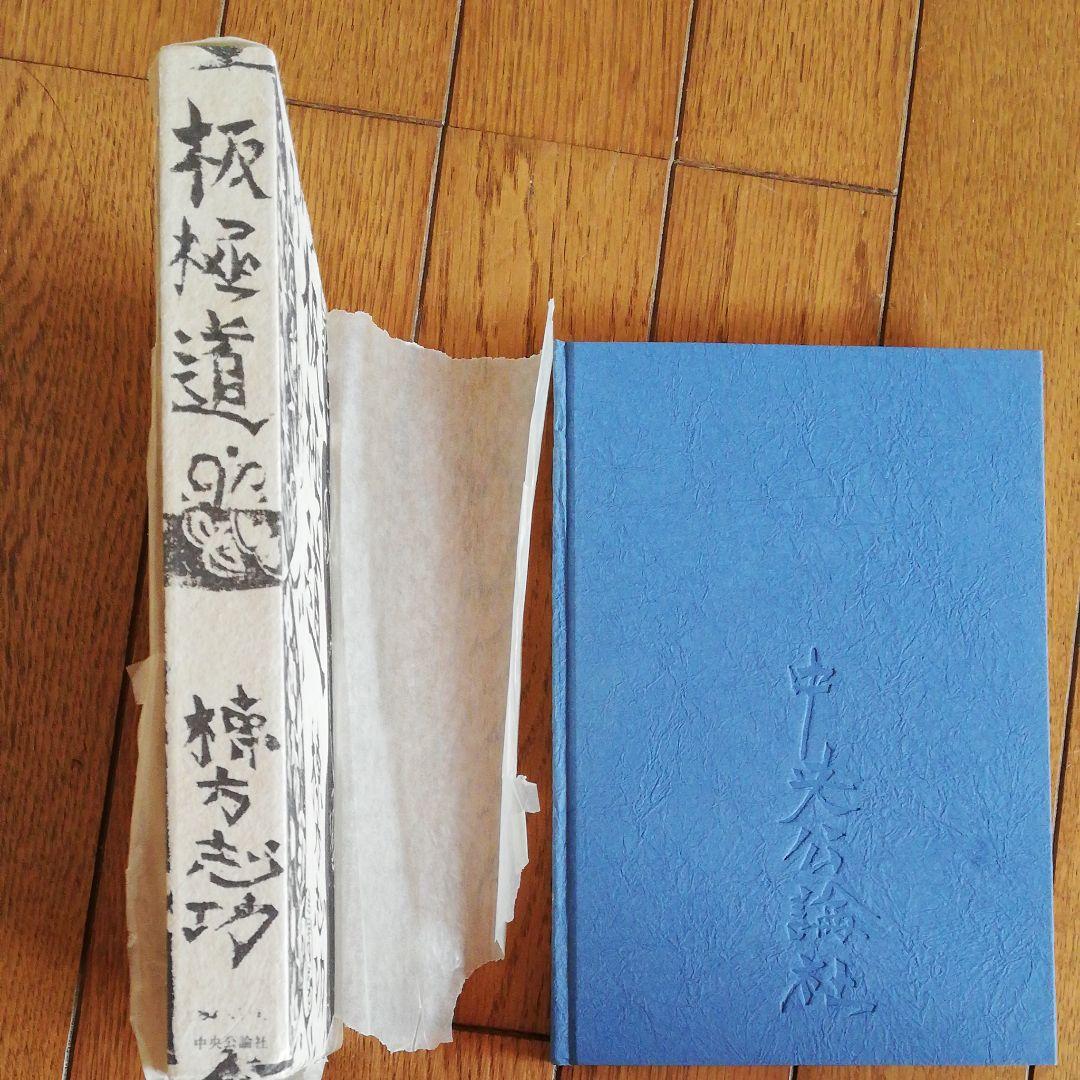 板極道
棟方志功
中央公論社
中央公論社